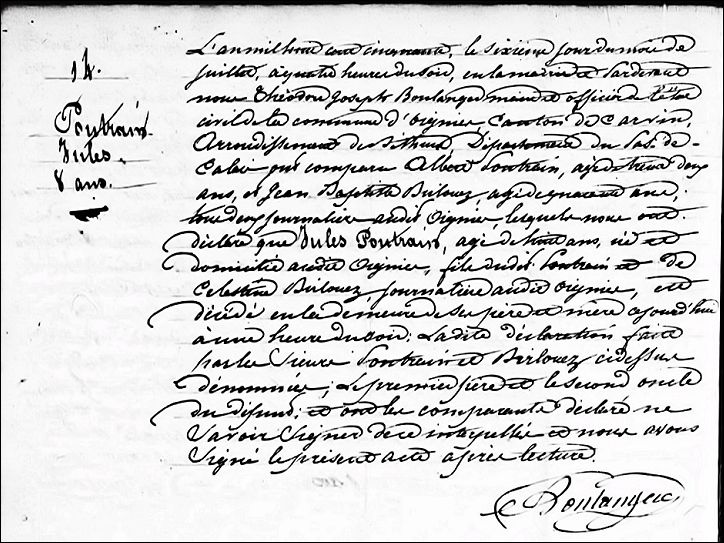 14.
Poutrain
Jules
8 ans.
L'an mil huit cent cinquante, le sixième jour du mois de
juillet, à quatre heures du soir, en la mairie et pardevant
nous Théodore Joseph Boulanger maire et officier de l'état
civil de la commune d'Oignies Canton de Carvin,
Arrondissement de Béthune, Département du Pas-de-
Calais ont comparu Albert Poutrain, agé de trente deux
ans, et Jean Baptiste Birlouez, agé de quarante ans,
tous deux journaliers audit Oignies, lesquels nous ont
déclaré que Jules Poutrain, agé de huit ans, né et
domicilié audit Oignies, fils dudit Poutrain et de
Célestine Birlouez, journalière audit Oignies, est
décédé en la demeure de ses père et mère aujourd'hui
à une heure du soir; La dite déclaration faite
par les Sieurs Poutrain et Birlouez cidessus
dénommés; le premier père et le second oncle
du défunt; et ont les comparants déclaré ne
savoir signer de ce interpellés et nous avons
signé le présent acte après lecture.
Boulanger